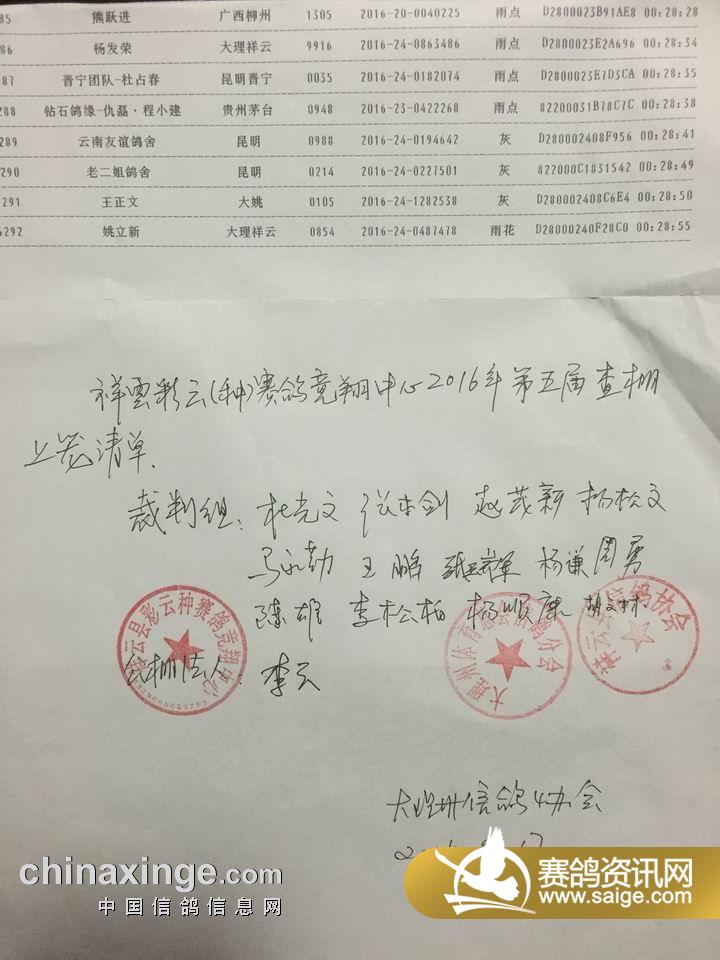 85 熊跃进 广西柳州 1305 2016-20-0040225 雨点 D2800023B91AE8 00:28:28
86 杨发荣 大理祥云 9916 2016-24-0863486 雨点 D2800023E2A696 00:28:34
87 晋宁团队-杜占春 昆明晋宁 0035 2016-24-0182074 雨点 D2800023E7D3CA 00:28:35
288 钻石鸽缘-仇磊·程小建 贵州茅台 0948 2016-23-0422268 雨点 82200031B78C7C 00:28:38
289 云南友谊鸽舍 昆明 0988 2016-24-0194642 灰 D280002408F956 00:28:41
290 老二姐鸽舍 昆明 0214 2016-24-0227501 灰 822000C1831542 00:28:49
291 王正文 大姚 0105 2016-24-1282538 灰 D280002408C6E4 00:28:50
292 姚立新 大理祥云 0854 2016-24-0487478 雨花 D28000240F28C0 00:28:55
祥雲彩云(种)赛鸽竞翔中心2016年第五届查棚
上笼清单.
裁判组: 杜光文 张本剑 赵茂新 杨松文
马永勤 王鹏 张瑞军 杨谦 周勇
陈雄 李松柏 杨顺康 胡文林
公棚法人 李云
祥云县彩云种赛鸽竞翔中心
5329000023763
大理州体育总会信鸽分会
祥云县信鸽协会
大理州信鸽协会
chinaxinge.com
中国信鸽信息网
赛鸽资讯网
www.saige.com